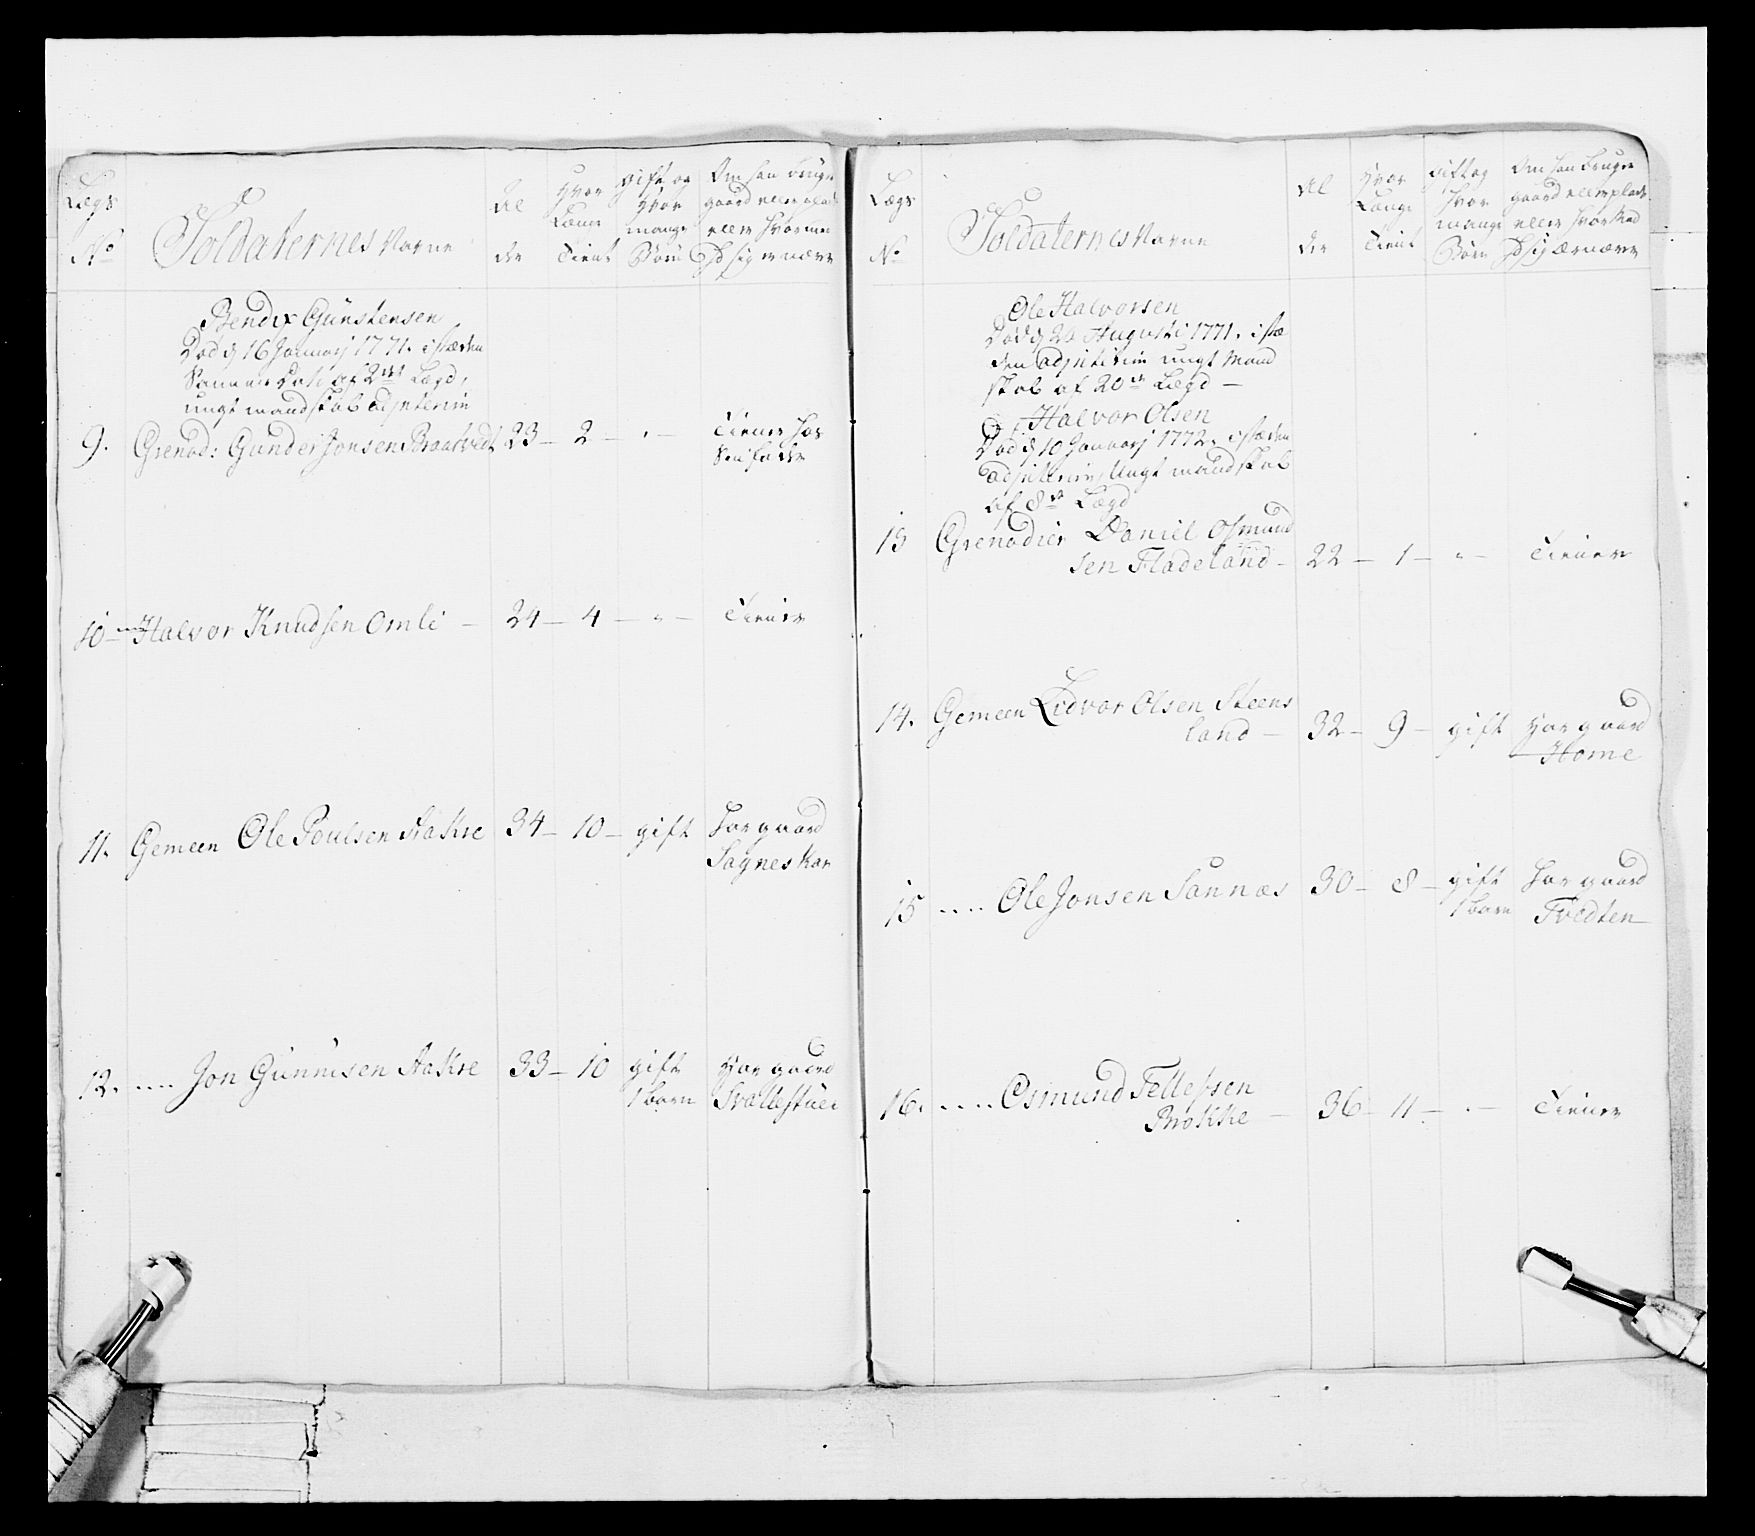 Lægs
No
Soldaternes Navne
Al
der
Hvor
Længe
Tient
gift og
Hvor
mange
Börn
Om han bruger
gaard eller plads
eller Hvormed
Hand sig ernærer
Bendix Gunstensen
Död d 16 Januarj 1771. i stæden
af 2det Lægd,
ungt mandskab
9. Grenad: Gunder Jonsen Braatvedt 23 – 2 – " – Tiener hos
Sin fader
10 – Halvor Knudsen Omli – 24 – 4 – " – Tiener
11. Gemeen Ole Poulsen Aakre 34 – 10 – gift Har gaard
Sagneskar
12. .... Jon Gunnusen Aakre 33 – 10 gift Har gaard
1 barn Svallestuei
Lægs
No
Soldaternes Navne
Al
der
Hvor
Længe
Tient
gift og
Hvor
mange
Börn
Om han bruger
gaard eller plads
eller Hvor Med
Hand sig ærnærer
Ole Halvorsen
Död d 20 Augusti 1771. i stæ
den ungt Mand
skab af 20de Lægd –
Halvor Olsen
Död d 10 Januarj 1772. i stæden
Ungt mandskab
af 8de Lægd
13 Grenadier Daniel Osmund
sen Fladeland – 22 – 1 – " – Tiener
14. Gemeen Lidvor Olsen Steens
land – 32 – 9 – gift Har gaard
Home
15 .... Ole Jonsen Sannæs 30 – 8 – gift Har gaard
1 barn Tvedten
16. .... Osmund Tellefsen
Brokke – 36 – 11 – " – Tiener